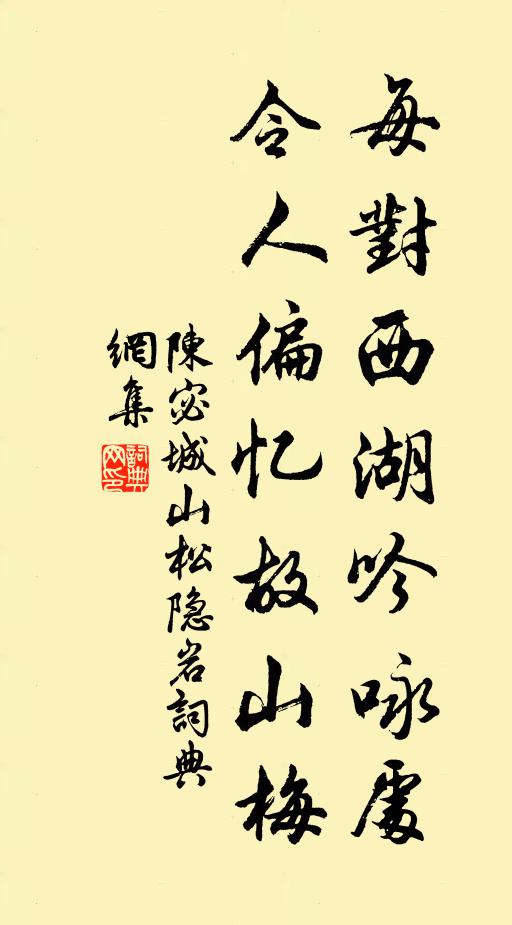 每對西湖吟咏處
令人偏忆故山梅
陳宓城山松隐岩詞典
網集
詞典网印